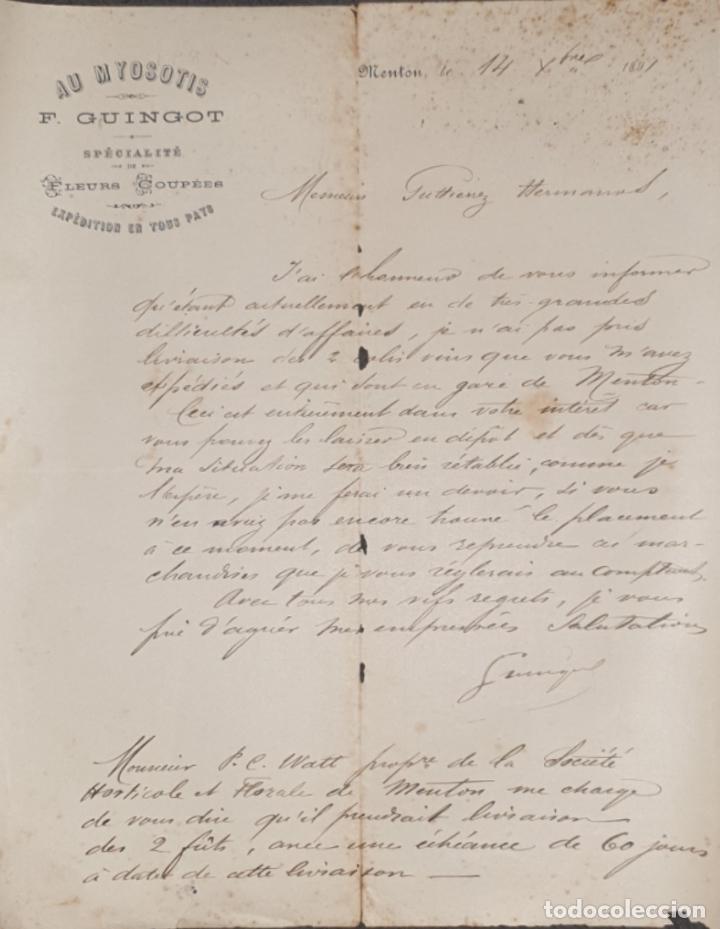 AU MYOSOTIS
F. GUINGOT
SPÉCIALITÉ
DE
FLEURS COUPÉES
EXPÉDITION EN TOUS PAYS
Menton, le 14 Xbre 1891
Messieurs Guttierrez Hermanos,
J'ai l'honneur de vous informer
qu'étant actuellement en de très-grandes
difficultés d'affaires, je n'ai pas pris
livraison des 2 colis vins que vous m'avez
expédiés et qui sont en gare de Menton-
Ceci est entièrement dans votre intérêt car
vous pouvez les laisser en dépôt et dès que
ma situation sera bien rétablie, comme je
l'espère, je me ferai un devoir, si vous
n'en avez pas encore trouvé le placement
à ce moment, de vous reprendre ces mar-
chandises que je vous règlerais au comptant,
Avec tous mes vifs regrets, je vous
prie d'agréer mes empressées salutations
Guingot
Monsieur P. C. Watt propre de la Société
Horticole et Florale de Menton me charge
de vous dire qu'il prendrait livraison
des 2 fûts, avec une échéance de 60 jours
à dater de cette livraison —
todocoleccion.net